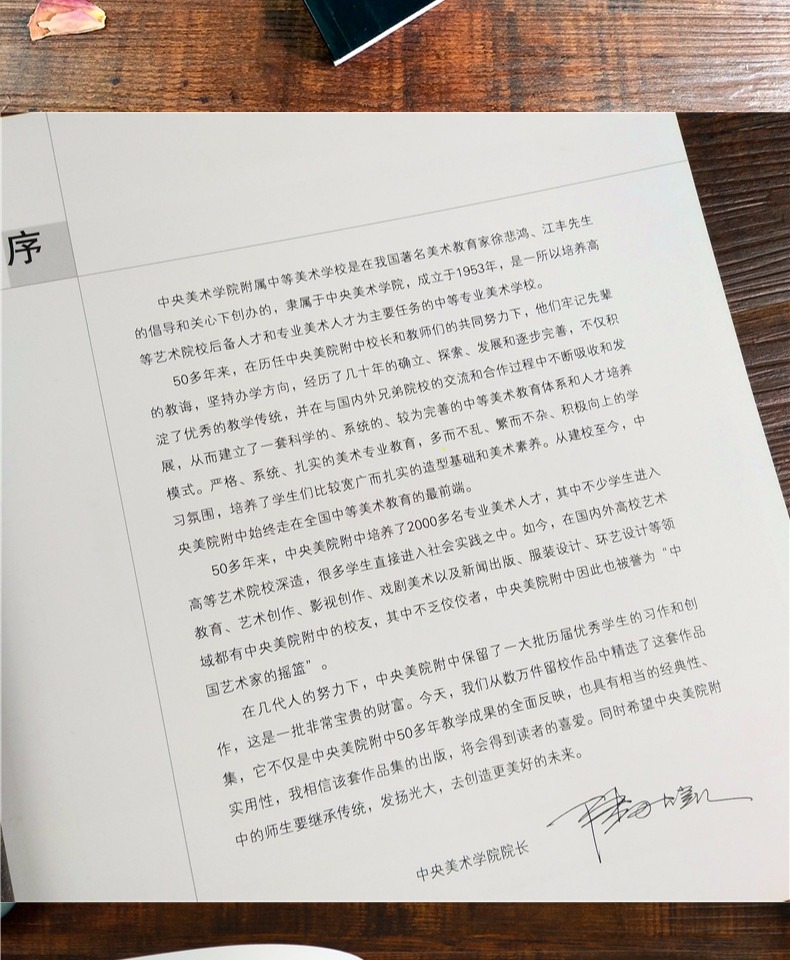 序
中央美术学院附属中等美术学校是在我国著名美术教育家徐悲鸿、江丰先生
的倡导和关心下创办的，隶属于中央美术学院，成立于1953年，是一所以培养高
等艺术院校后备人才和专业美术人才为主要任务的中等专业美术学校。
50多年来，在历任中央美院附中校长和教师们的共同努力下，他们牢记先辈
的教诲，坚持办学方向，经历了几十年的确立、探索、发展和逐步完善，不仅积
淀了优秀的教学传统，并在与国内外兄弟院校的交流和合作过程中不断吸收和发
展，从而建立了一套科学的、系统的、较为完善的中等美术教育体系和人才培养
模式。严格、系统、扎实的美术专业教育，多而不乱、繁而不杂、积极向上的学
习氛围，培养了学生们比较宽广而扎实的造型基础和美术素养。从建校至今，中
央美院附中始终走在全国中等美术教育的最前端。
50多年来，中央美院附中培养了2000多名专业美术人才，其中不少学生进入
高等艺术院校深造，很多学生直接进入社会实践之中。如今，在国内外高校艺术
教育、艺术创作、影视创作、戏剧美术以及新闻出版、服装设计、环艺设计等领
域都有中央美院附中的校友，其中不乏佼佼者，中央美院附中因此也被誉为“中
国艺术家的摇篮”。
在几代人的努力下，中央美院附中保留了一大批历届优秀学生的习作和创
作，这是一批非常宝贵的财富。今天，我们从数万件留校作品中精选了这套作品
集，它不仅是中央美院附中50多年教学成果的全面反映，也具有相当的经典性、
实用性，我相信该套作品集的出版，将会得到读者的喜爱。同时希望中央美院附
中的师生要继承传统，发扬光大，去创造更美好的未来。
中央美术学院院长